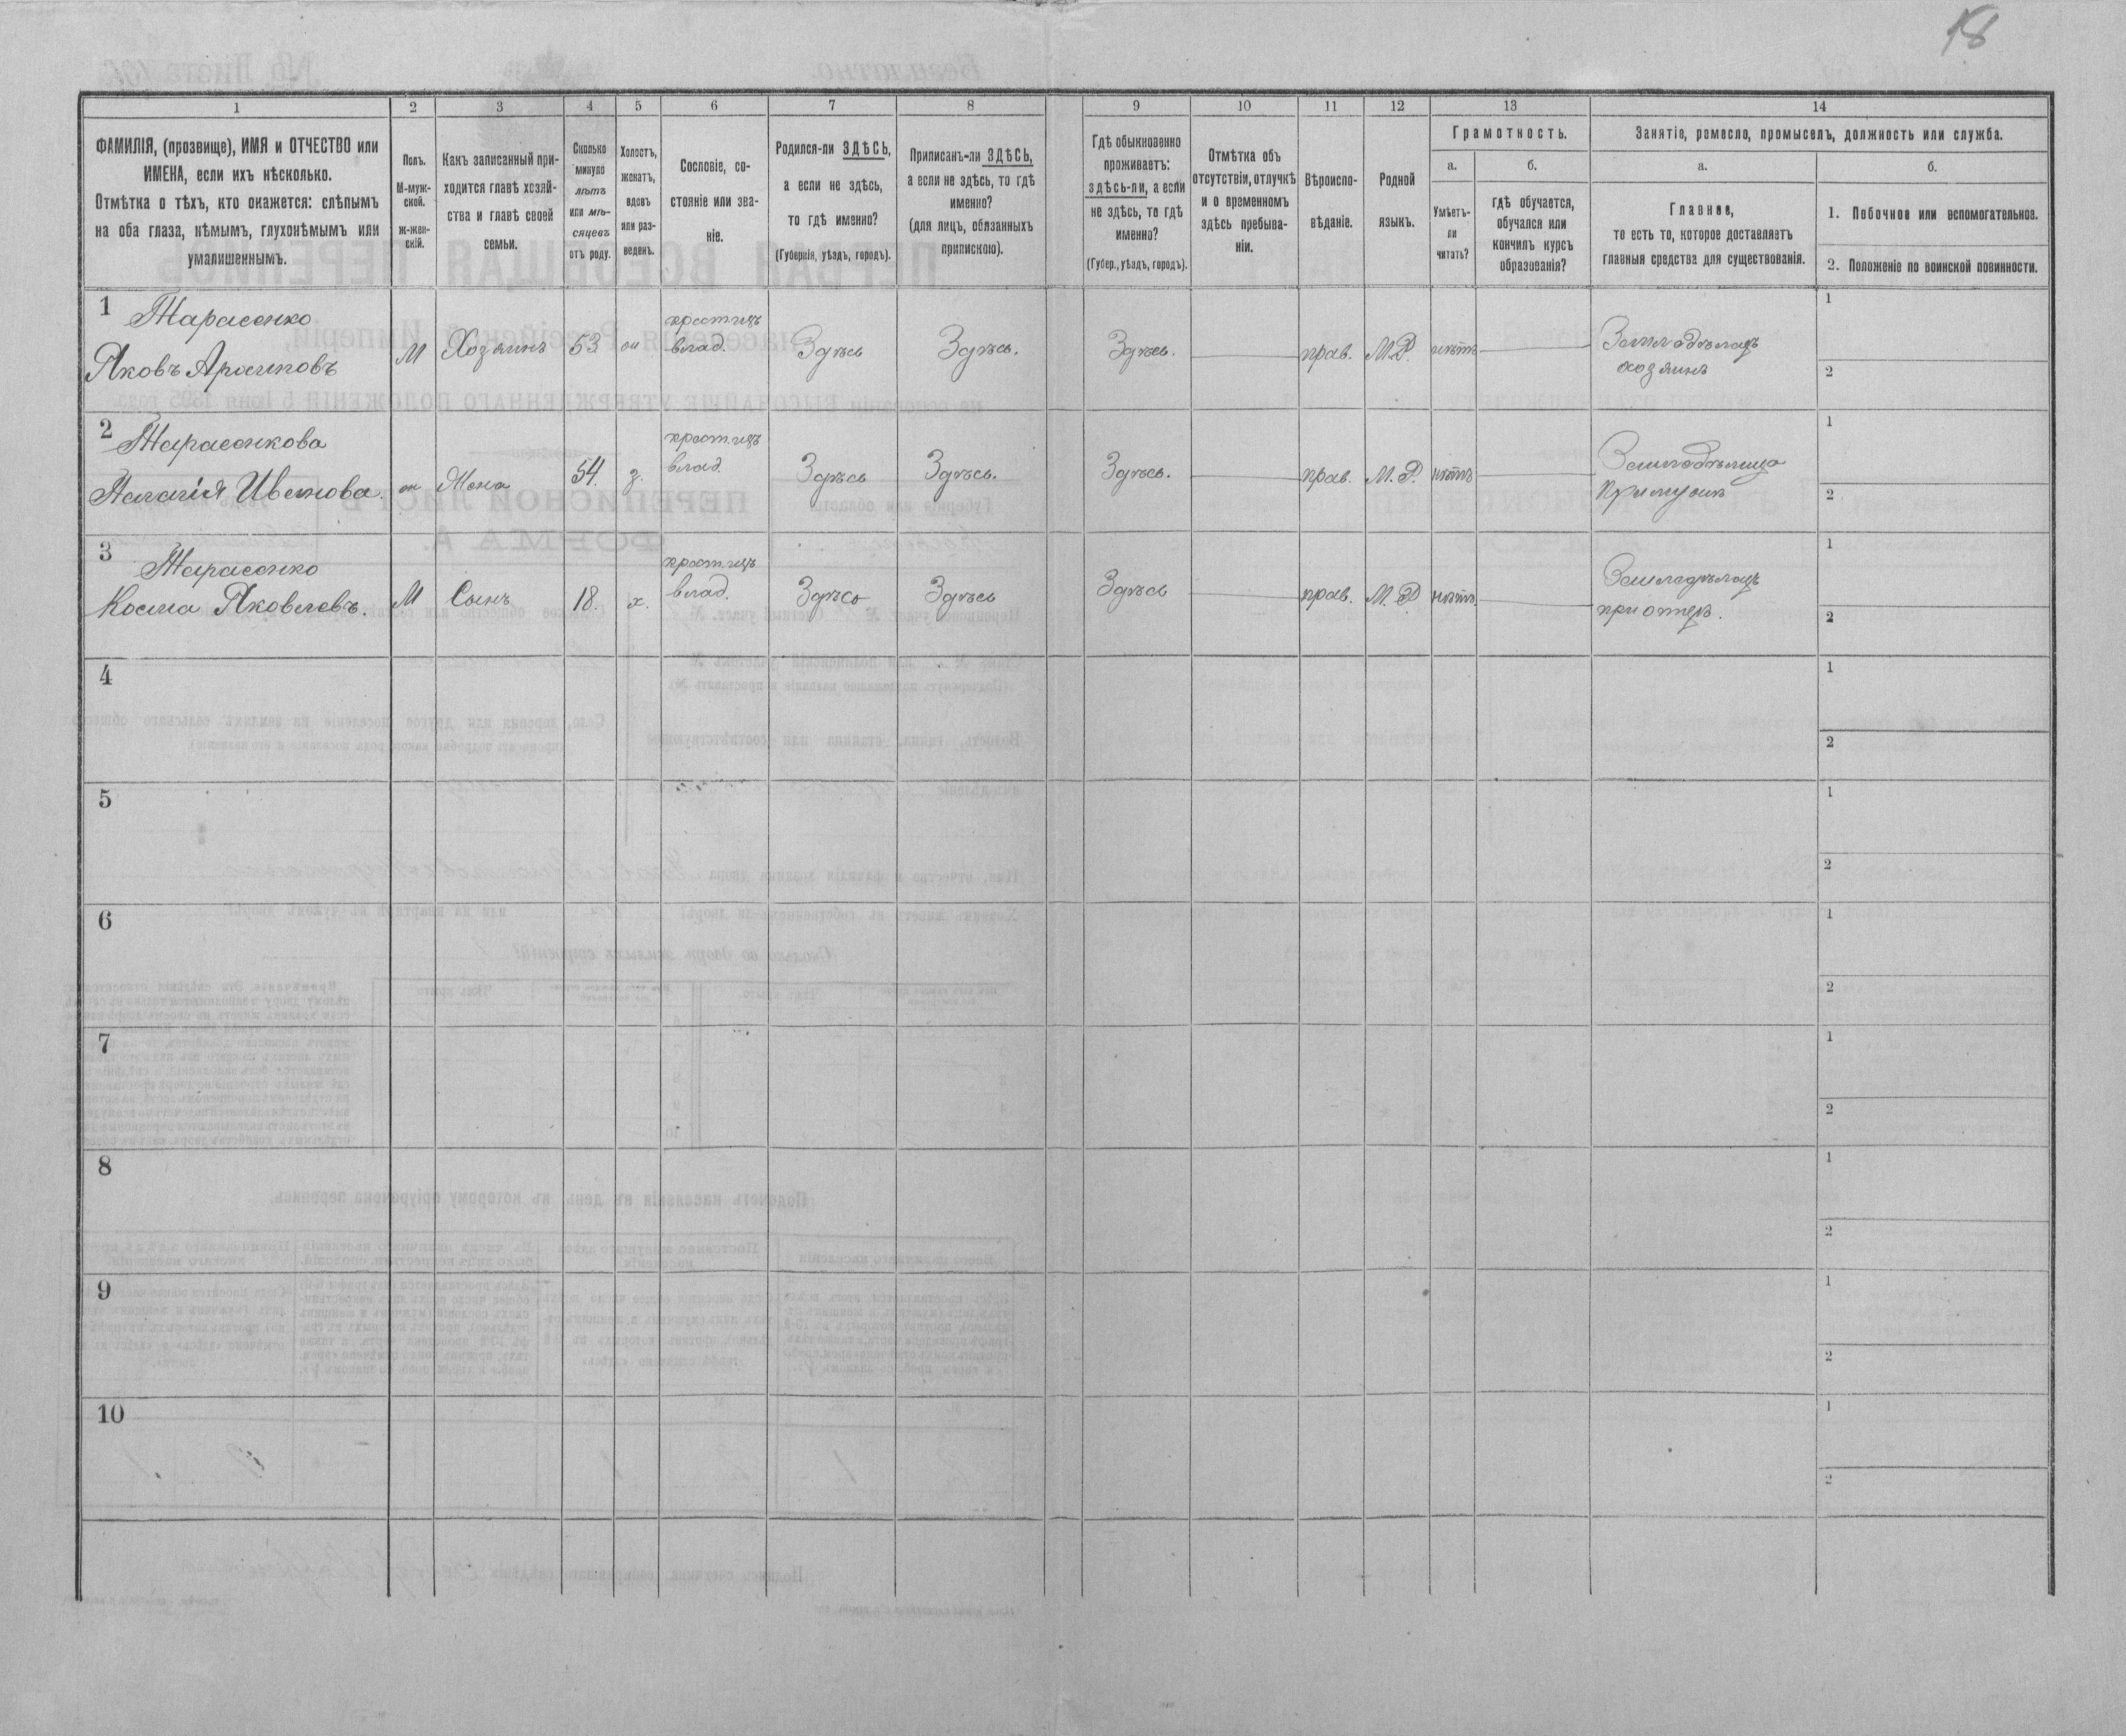 18
1 2 3 4 5 6 7 8 9 10 11 12 13 14
ФАМИЛІЯ, (прозвище), ИМЯ и ОТЧЕСТВО или
ИМЕНА, если ихъ нѣсколько.
Отмѣтка о тѣхъ, кто окажется: слѣпымъ
на оба глаза, нѣмымъ, глухонѣмымъ или
умалишеннымъ.
Полъ.
М-муж-
ской.
ж-жен-
скій.
Какъ записанный при-
ходится главѣ хозяй-
ства и главѣ своей
семьи.
Сколько
минуло
лѣтъ
или мѣ-
сяцевъ
отъ роду.
Холостъ,
женатъ,
вдовъ
или раз-
веденъ.
Сословіе, со-
стояніе или зва-
ніе.
Родился-ли ЗДѢСЬ,
а если не здѣсь,
то гдѣ именно?
(Губернія, уѣздъ, городъ).
Приписанъ-ли ЗДѢСЬ,
а если не здѣсь, то гдѣ
именно?
(для лицъ, обязанныхъ
припискою).
Гдѣ обыкновенно
проживаетъ:
здѣсь-ли, а если
не здѣсь, то гдѣ
именно?
(Губер., уѣздъ, городъ).
Отмѣтка объ
отсутствіи, отлучкѣ
и о временномъ
здѣсь пребыва-
ніи.
Вѣроиспо-
вѣданіе.
Родной
языкъ.
Грамотность.
а.
Умѣетъ-
ли
читать?
б.
гдѣ обучается,
обучался или
кончилъ курсъ
образованія?
Занятіе, ремесло, промыселъ, должность или служба.
а.
Главное,
то есть то, которое доставляетъ
главныя средства для существованія.
б.
1. Побочное или вспомогательное.
2. Положеніе по воинской повинности.
1 Тарасенко
Яковъ Архиповъ
М Хозяинъ 53
влад. Здѣсь Здѣсь. Здѣсь. прав. М.Р. нѣтъ
Земледѣлецъ
хозяинъ
1
2
2 Тарасенкова
Пелагія Иванова.
Жена 54 з.
влад. Здѣсь Здѣсь. Здѣсь. прав. М.Р. нѣтъ
1
2
3 Тарасенко
Косма Яковлевъ.
М Сынъ 18. х.
влад. Здѣсь Здѣсь Здѣсь прав. М.Р. нѣтъ
Земледѣлецъ
при отцѣ.
1
2
4
1
2
5
1
2
6
1
2
7
1
2
8
1
2
9
1
2
10
1
2